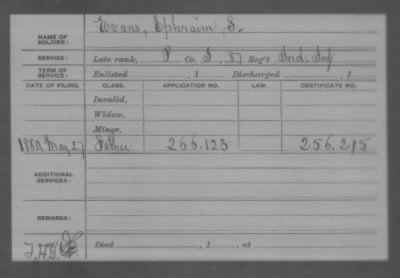 NAME OF SOLDIER: Evans, Ephraim S.
SERVICE: Late rank, P Co. , 87 Reg't Ind. Inf
TERM OF SERVICE: Enlisted , 1 Discharged , 1
DATE OF FILING. CLASS. APPLICATION NO. LAW. CERTIFICATE NO.
Invalid,
Widow,
Minor,
1880, May 27 Father 266.123 256.215
ADDITIONAL SERVICES:
REMARKS:
Died , 1 , at